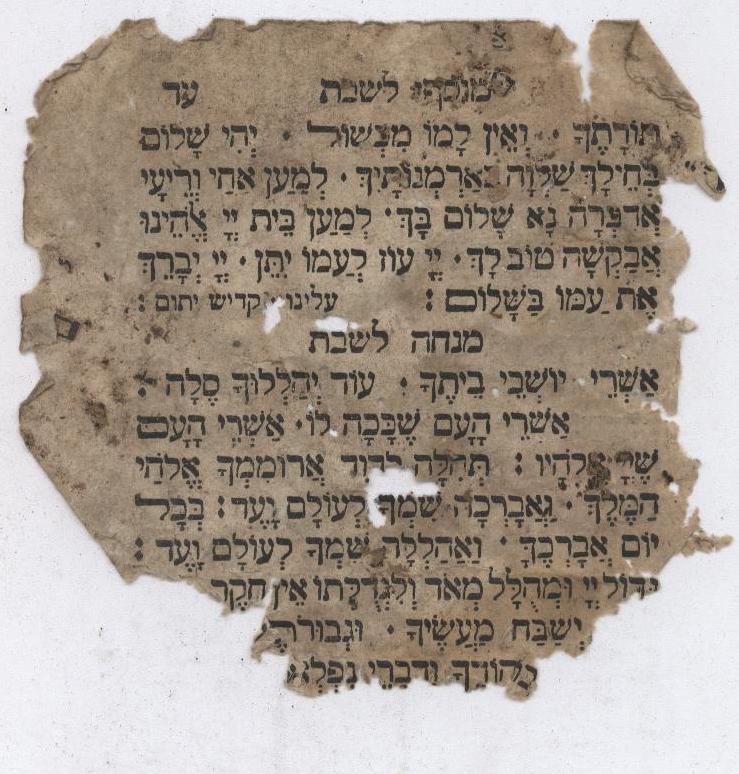 מוסף לשבת עד
תוֹרָתֶךָ · וְאֵין לָמוֹ מִכְשׁוֹל · יְהִי שָׁלוֹם
בְּחֵילֵךְ שַׁלְוָה בְּאַרְמְנוֹתָיִךְ · לְמַעַן אַחַי וְרֵיעָי
אֲדַבְּרָה נָא שָׁלוֹם בָּךְ · לְמַעַן בֵּית יְיָ אֱלֹהֵינוּ
אֲבַקְשָׁה טוֹב לָךְ · יְיָ עוֹז לְעַמּוֹ יִתֵּן · יְיָ יְבָרֵךְ
אֶת עַמּוֹ בַּשָּׁלוֹם : עלינו קדיש יתום :
מנחה לשבת
אַשְׁרֵי יוֹשְׁבֵי בֵיתֶךָ · עוֹד יְהַלְלוּךָ סֶלָה :
אַשְׁרֵי הָעָם שֶׁכָּכָה לוֹ · אַשְׁרֵי הָעָם
תְּהִלָּה לְדָוִד אֲרוֹמִמְךָ אֱלֹהַי
הַמֶּלֶךְ · וַאֲבָרְכָה שִׁמְךָ לְעוֹלָם וָעֶד : בְּכָל
יוֹם אֲבָרְכֶךָּ · וַאֲהַלְלָה שִׁמְךָ לְעוֹלָם וָעֶד :
גָּדוֹל יְיָ וּמְהֻלָּל מְאֹד וְלִגְדֻלָּתוֹ אֵין חֵקֶר
יְשַׁבַּח מַעֲשֶׂיךָ · וּגְבוּרֹתֶי
הוֹדֶךָ וְדִבְרֵי נִפְלְא